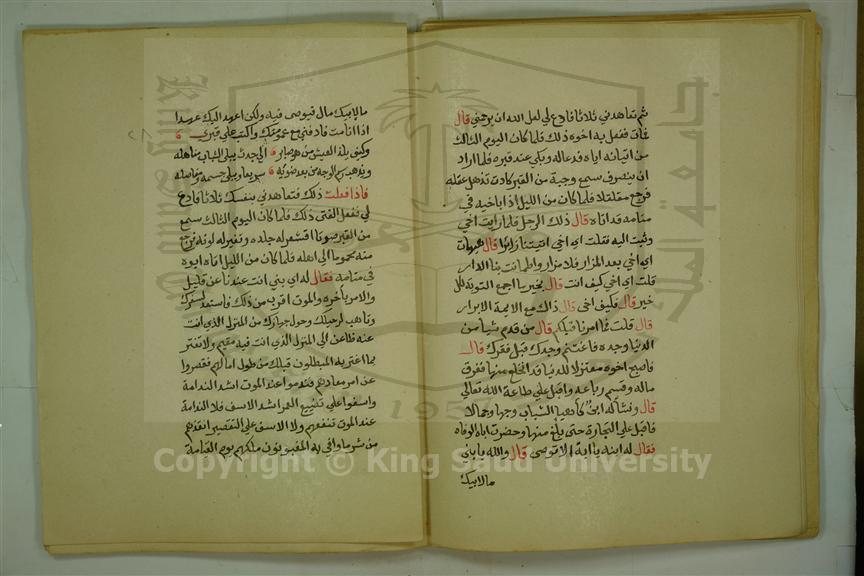 ثم تعاهدني ثلاثا فادع لي لعل الله ان يرحمني قال
فمات ففعل به اخوه ذلك فلما كان اليوم الثالث
من اتيانه اياه فدعا له وبكى عند قبره فلما اراد
ان ينصرف سمع وجبة من القبر كادت تذهل عقله
فرجع مقلقلا فلما كان من الليل اذا باخيه في
منامه قد اتاه قال ذلك الرجل فلما رايت اخي
وثبت اليه فقلت اي اخي اتيتنا زايرا قال هيهات
اي اخي بعد المزار فلا مزار واطمانت بنا الدار
قلت اي اخي كيف انت قال بخير ما اجمع التوبة لكل
خير قال فكيف اخي قال ذاك مع الايمة الابرار
قال قلت فما امرنا قبلكم قال من قدم شيأ من
الدنيا وجده فاغتنم وجدك قبل فقرك قال
فاصبح اخوه معتزلا للدنيا قد انخلع منها ففرق
ماله وقسم رباعه واقبل علي طاعة الله تعالي
قال ونشا له ابن كأهيا الشباب وجها وجمالا
فاقبل علي التجارة حتى بلغ منها وحضرت اباه الوفاه
فقال له ابنه يا ابة الا توصى قال والله يا بني
ما لابيك
ما لابيك مال فيوصى فيه ولكن اعهد اليك عهدا
اذا انا مت فادفني مع عمومتك واكتب علي قبري
وكيف يلذ العيش من هو صاير الي جدث يبلى الشباب مناهله
ويذهب رسم الوجه من بعد ضوئه سريعا ويبلى جسمه ومفاصله
فاذا فعلت ذلك فتعاهدني بنفسك ثلاثا فادع
لي ففعل الفتى ذلك فلما كان اليوم الثالث سمع
من القبر صوتا اقشعر له جلده وتغير له لونه فرجع
منه محموما الى اهله فلما كان من الليل اتاه ابوه
في منامه فقال له اي بني انت عندنا عن قليل
والامر بأخره والموت اقرب من ذلك فاستعد لسفرك
وتأهب لرحيلك وحول جهازك من المنزل الذي انت
عنه ظاعن الى المنزل الذي انت فيه مقيم ولا تغتر
بما اغتر به المبطلون قبلك من طول امالهم فقصروا
عن امر معادهم فندموا عند الموت اشد الندامة
واسفوا علي تضييع العمر اشد الاسف فلا الندامة
عند الموت تنفعهم ولا الاسف علي التقصير انقذهم
من شر ما وافى به المغبونون مليكهم يوم القيامة
Copyright © King Saud University